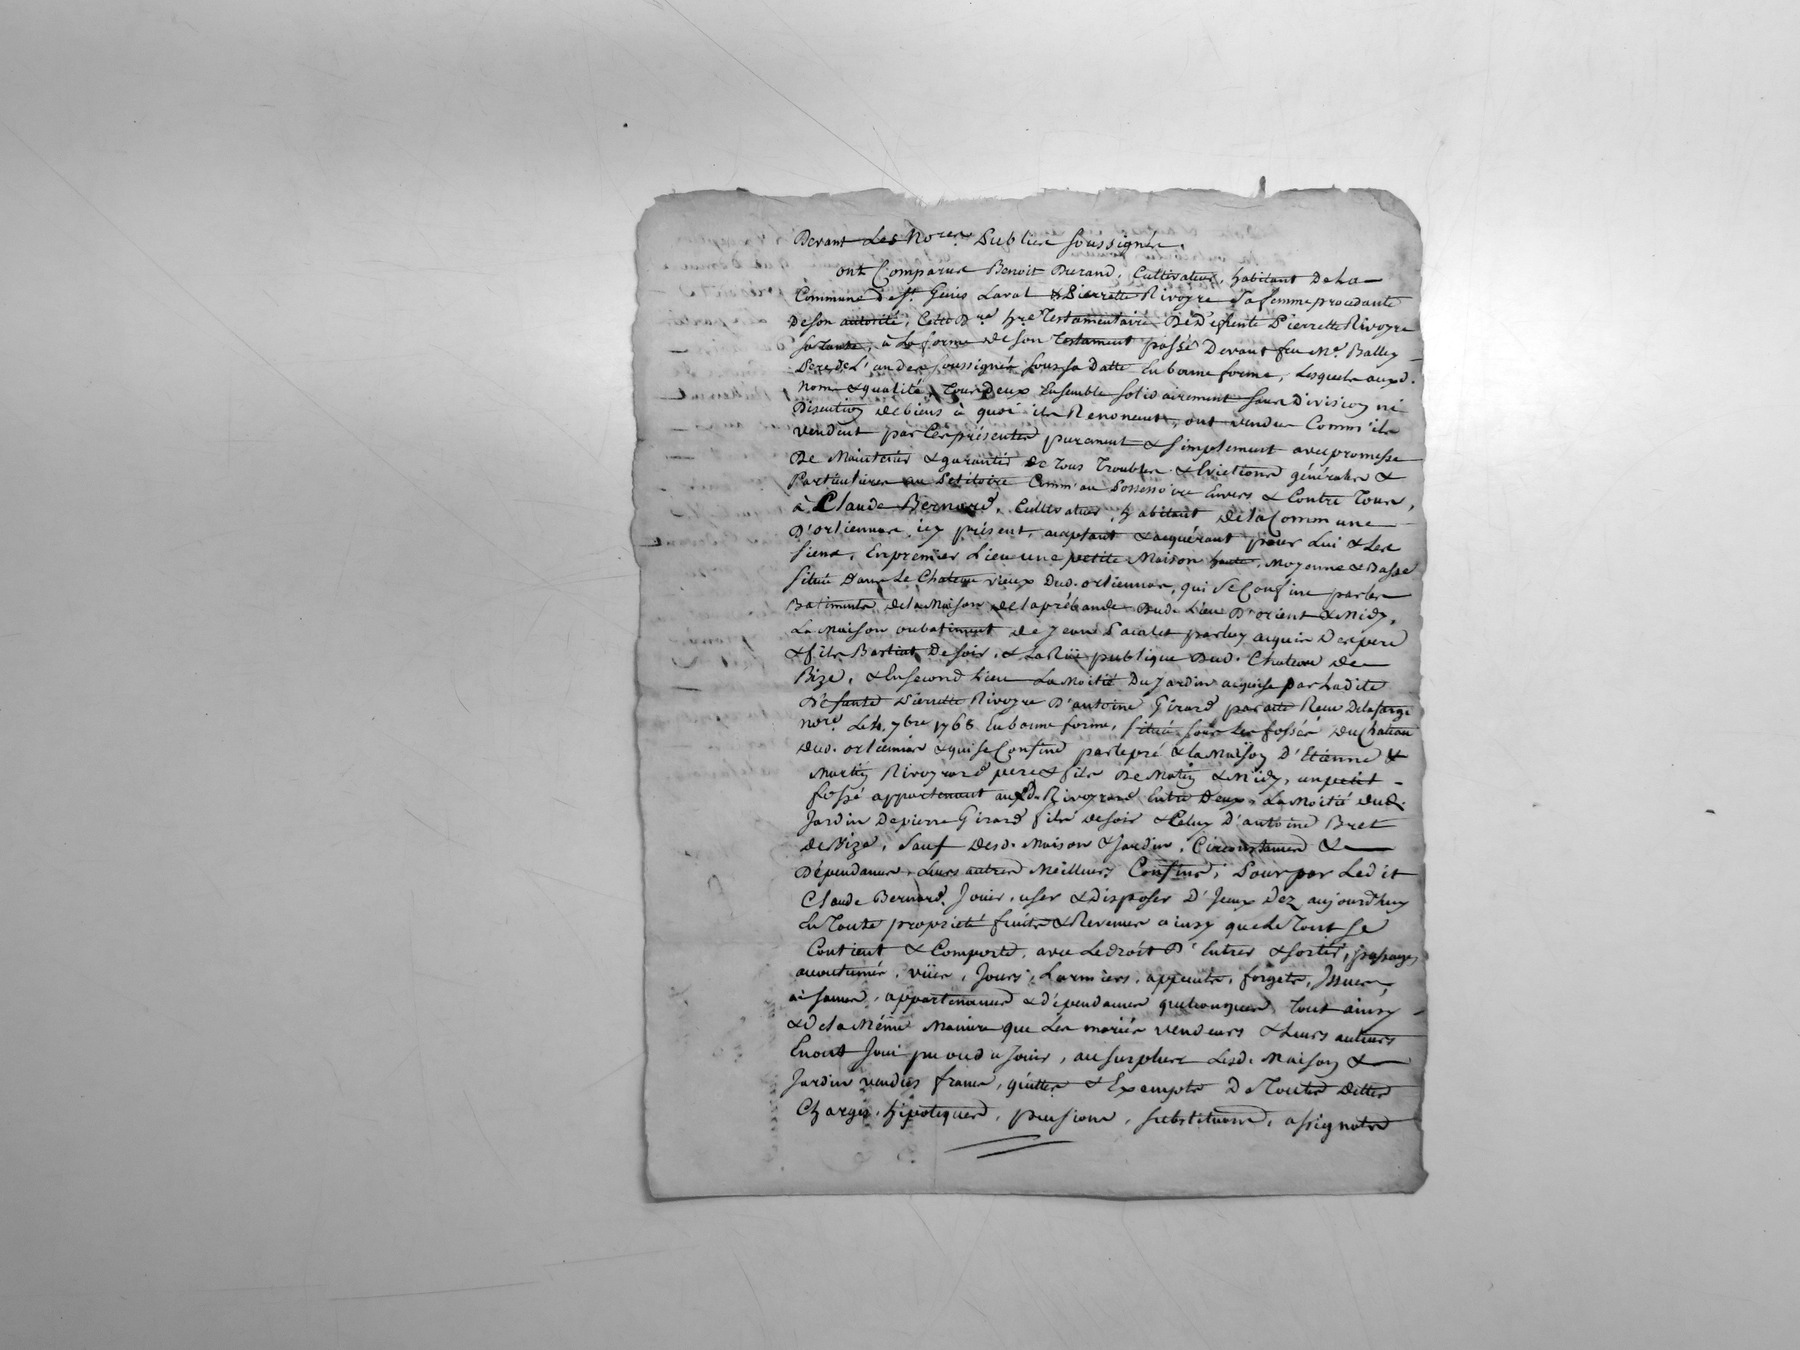 Devant Les No.res Publics soussignés.
ont Comparus Benoit Durand, Cultivateur, habitant De La
Commune de St. Genis Laval & Pierrette Rivoyre sa femme procedante
De son autorité, Cette D.re h.re Testamentaire De Defunte Pierrette Rivoyre
sa Tante, à La forme de son Testament passé Devant feu Me. Balley
Pere de L'un des soussignés sous sa Datte En bonne forme, Lesquels auxd.
Noms & qualités Tous Deux Ensemble solidairement sans Division ni
Discution de biens à quoi ils Renoncent, ont vendu Comm'ils
vendent par Ces présentes purement & simplement avec promesse
De Maintenir & garantir de Tous Troubles & Evictions générales &
Particulieres au Petitoire Comm'au Possessoire Envers & Contre Tous,
à Claude Bernard, Cultivateur, habitant de la Commune
D'orlienas, icy présent, acceptant & acquérant pour Lui & Les
siens, En premier Lieu une petite Maison haute, Moyenne & Basse
située dans Le Chateau vieux dud. orlienas, qui se Confine par les
Batiments de la Maison de la prébande dud. Lieu D'orient & Midy,
La Maison ou batiment de Jean Pacalet par luy acquis Des pere
& fils Bastiat De soir, & La Rüe publique dud. Chateau de
Bize, & En second Lieu La Moitié Du Jardin acquise par Ladite
Défunte Pierrette Rivoyre D'antoine Girard par acte Recu Delafarge
no.re Le 4. 7bre 1768 En bonne forme, située sous Les fossés du Chateau
dud. orlienas & qui se Confine par le pré & la Maison D'Etienne &
Martin Rivoyrard pere & fils De Matin & Midy, un petit
fossé appartenant auxd. Rivoyrard Entre Deux, La Moitié dud.
Jardin De pierre Girard fils de soir & Celuy D'antoine Bret
de Bize, sauf desd. Maison & Jardin, Circonstances &
Dépendances Leurs autres Meilleurs Confins, Pour par Ledit
Claude Bernard, Jouir, user & Disposer D'Jceux Dez aujourd'huy
En Toute propriété fruits & Revenus ainsy que Le Tout se
Contient & Comporte, avec Le droit D'Entrer & sortir, passages
acoutumés, vües, Jours, Larmiers, appentis, forgets, Jssues,
aisances, appartenances & dépendances quelconques Tout ainsy
& de la Même Maniere que Les mariés vendeurs & Leurs auteurs
En ont Joui pu ou du Jouir, au surplus Lesd. Maison &
Jardin vendus francs, quittes & Exempts De Toutes Dettes
Charges, hipoteques, pensions, substitutions, assignats